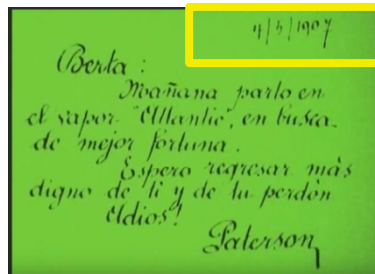 4/5/1907
Berta:
Mañana parto en
el vapor "Atlantic", en busca
de mejor fortuna.
Espero regresar más
digno de ti y de tu perdón
Adios!
Paterson